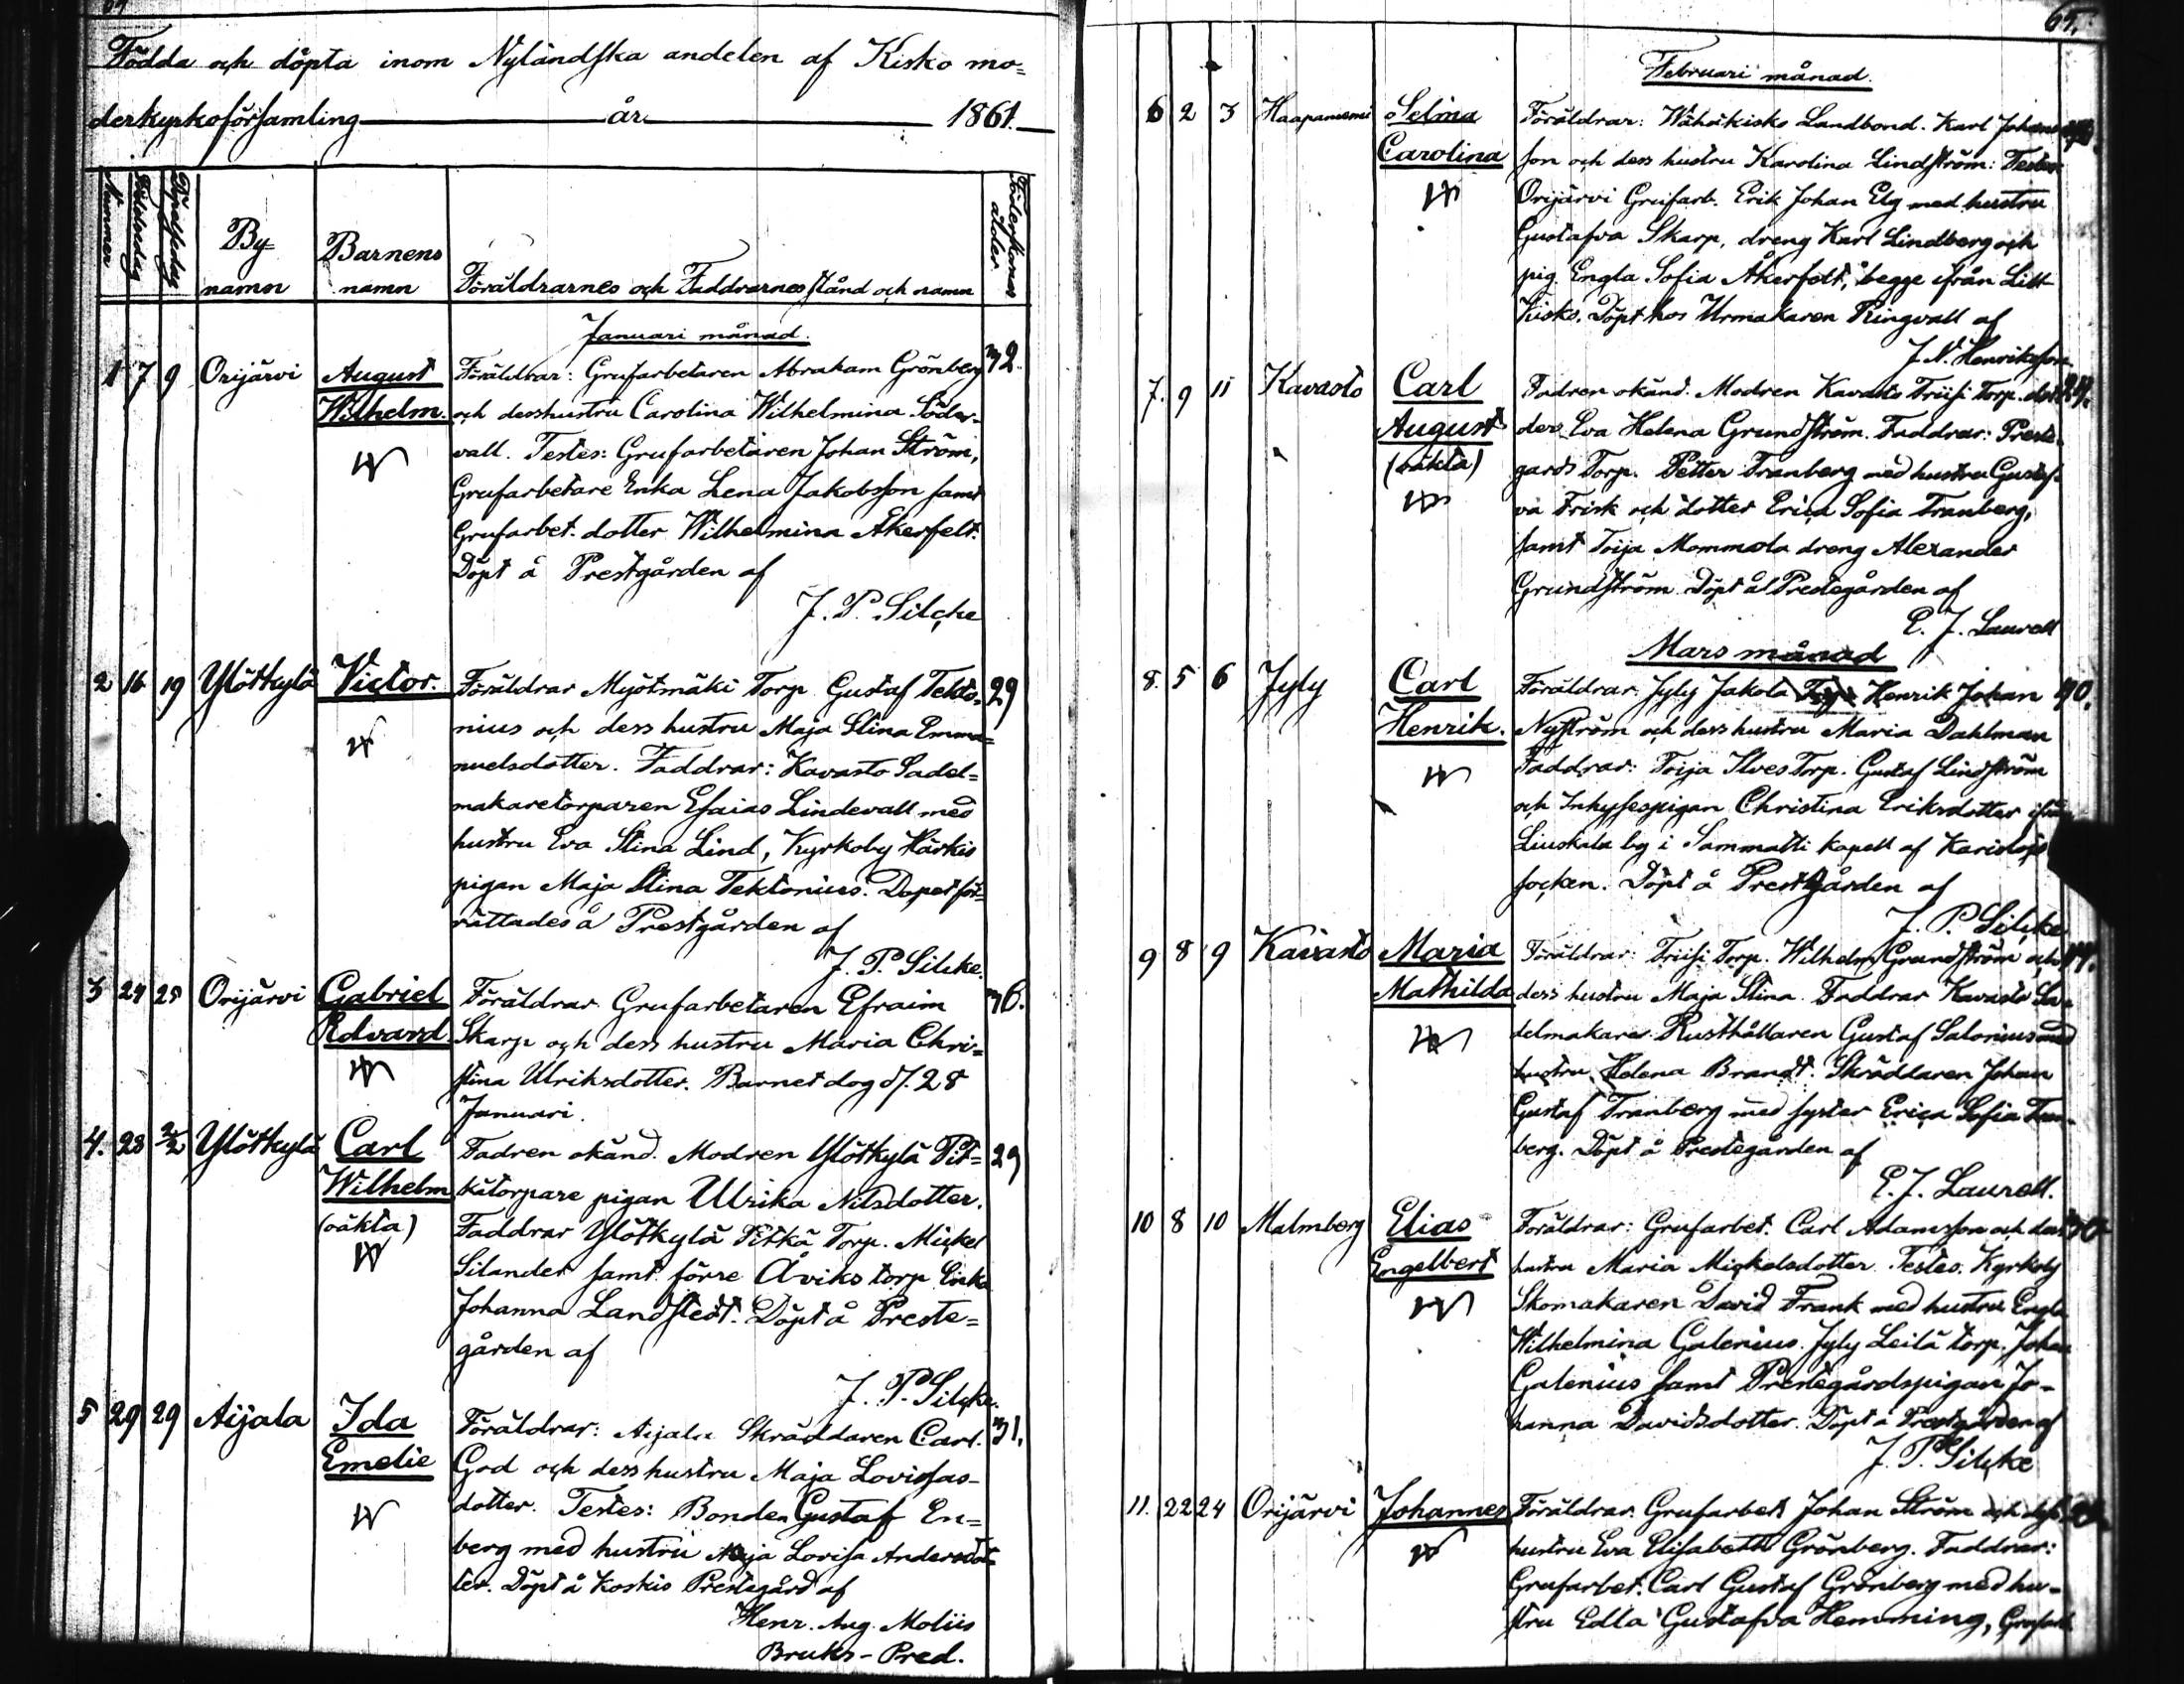 Födda och döpta inom Nyländska andelen af Kisko mo=
derkyrkoförsamling år 1861.
Nummer Födelsedag Döpelsedag By=namn Barnens namn Föräldrarnes och Faddrarnes stånd och namn Föderskans ålder.
Januari månad.
1 7 9 Orijärvi August Föräldrar: Grufarbetaren Abraham Grönberg 32.
Wilhelm. och dess hustru Carolina Wilhelmina Söder-
vall. Testes: Grufarbetaren Johan Ström,
Grufarbetare Enka Lena Jakobsson samt
Grufarbet. dotter Wilhelmina Åkerfelt.
Döpt å Prestgården af
J. P. Silcke
2 16 19 Ylötkylä Victor. Föräldrar Myötmäki Torp Gustaf Tekto= 29
nius och dess hustru Maja Stina Emma=
nuelsdotter. Faddrar: Kavasto Sadel=
makaretorparen Esaias Lindevall med
hustru Eva Stina Lind, Kyrkoby Härkis
pigan Maja Stina Tektonius. Dopet för=
rättades å Prestgården af
J. P. Silcke.
3 24 25 Orijärvi Gabriel Föräldrar Grufarbetaren Efraim 36.
Edvard Skarp och dess hustru Maria Chri=
stina Ulriksdotter. Barnet dog d. 28
Januari.
4. 28 2/2 Ylötkylä Carl Fadren okänd. Modren Ylötkylä Pit= 29
Wilhelm kätorpare pigan Ulrika Nilsdotter.
(oäkta) Faddrar Ylötkylä Pitkä Torp. Mickel
Silander samt förre Åviks torp. Enka
Johanna Landstedt. Döpt å Preste=
gården af
J. P. Silcke.
5 29 29 Aijala Ida Föräldrar: Aijala Skräddaren Carl 31.
Emelie God och dess hustru Maja Lovisas-
dotter. Testes: Bonden Gustaf En=
berg med hustru Maja Lovisa Andersdot=
ter. Döpt å Koskis Prestegård af
Henr. Aug. Moliis
Bruks-Pred.
65.
Februari månad.
6 2 3 Haapaniemi Selma Föräldrar: Wähäkisko Landbond. Karl Johans
Carolina son och dess hustru Karolina Lindström: Testes
Orijärvi Grufarb. Erik Johan Elg med hustru
Gustafva Skarp, dreng Karl Lindberg och
pig. Engla Sofia Åkerfelt, begge ifrån Lill-
Kisko. Döpt hos Urmakaren Ringvall af
J. N. Henriksson.
7. 9 11 Kavasto Carl Fadren okänd. Modren Kavasto Friisi Torp. dot=
August der Eva Helena Grundström. Faddrar: Preste-
(oäkta) gards Torp. Petter Tranberg med hustru Gustaf-
va Frisk och dotter Erica Sofia Tranberg,
samt Toija Mommola dreng Alexander
Grundström Döpt å Prestegården af
E. J. Laurell
Mars månad
8. 5 6 Jyly Carl Föräldrar: Jyly Jakola Torp. Henrik Johan 40.
Henrik. Nyström och dess hustru Maria Dahlman
Faddrar: Toija Ilves Torp. Gustaf Lindström
och Inhysespigan Christina Eriksdotter ifrån
Liuskala by i Sammatti kapell af Karislojo
socken. Döpt å Prestgården af
J. P. Silcke
9 8 9 Kavasto Maria Föräldrar: Friisi Torp. Wilhelm Grundström och 44.
Mathilda dess hustru Maja Stina. Faddrar Kavasto Sa-
delmakare Rusthållaren Gustaf Salonius med
hustru Helena Brandt. Skräddaren Johan
Gustaf Tranberg med syster Erica Sofia Tran-
berg. Döpt å Prestegården af
E. J. Laurell.
10 8 10 Malmberg Elias Föräldrar: Grufarbet. Carl Adamsson och dess 30
Engelbert hustru Maria Mickelsdotter. Testes. Kyrkoby
Skomakaren David Frank med hustru Engla
Wilhelmina Galenius. Jyly Leilä torp. Johan
Galenius samt Prestegårdspigan Jo-
hanna Davidsdotter. Döpt å Prestgården af
J. P. Silcke
11. 22 24 Orijärvi Johannes Föräldrar: Grufarbet. Johan Ström och dess
hustru Eva Elisabeth Grönberg. Faddrar:
Grufarbet. Carl Gustaf Grönberg med hu-
stru Edla Gustafva Hemming, Grufarb.